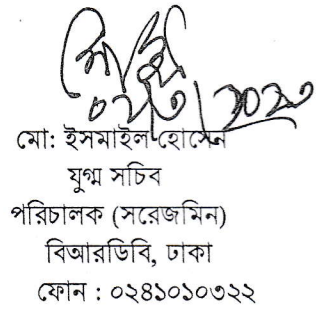 মো: ইসমাইল হোসেন
যুগ্ম সচিব
পরিচালক (সরেজমিন)
বিআরডিবি, ঢাকা
ফোন : ০২৪১০১০৩২২